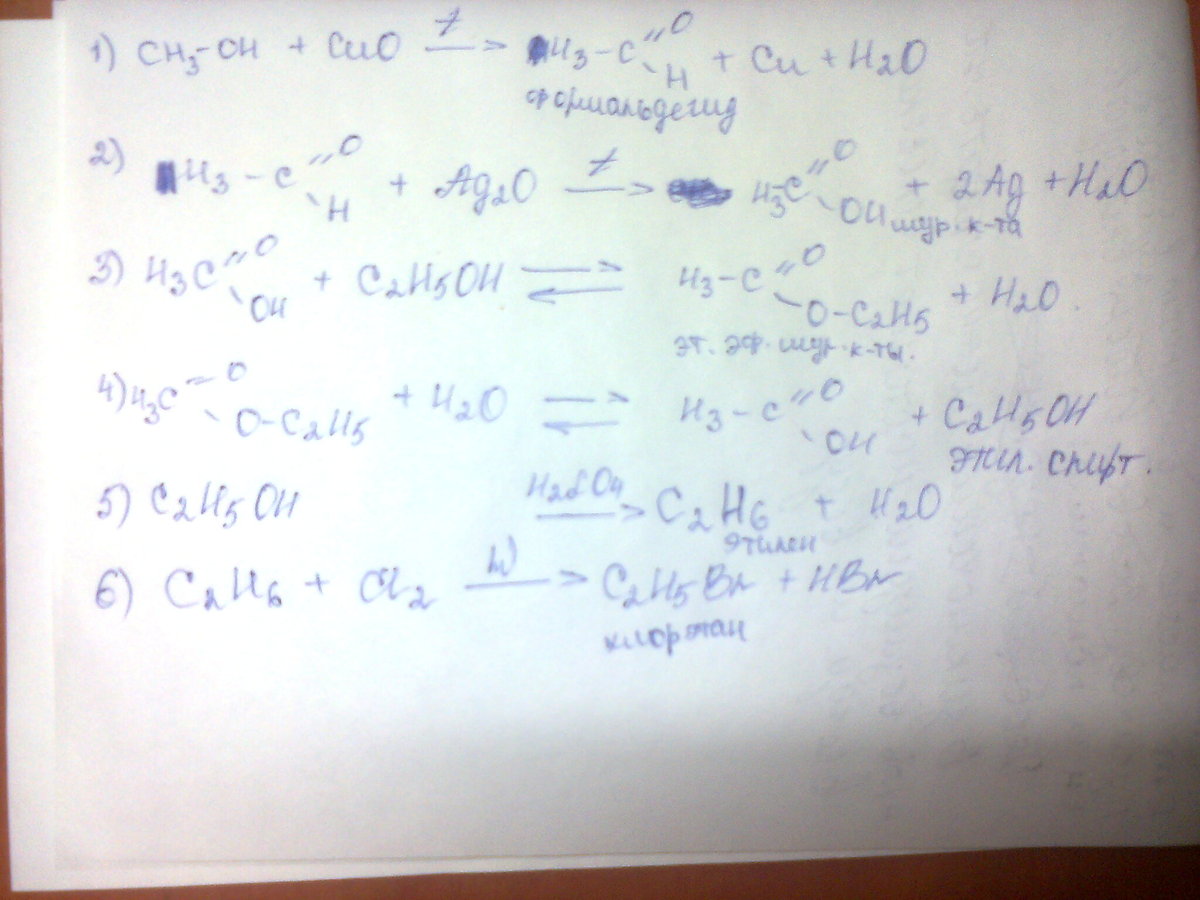 1) CH3-OH + CuO t → H3-C =O -H + Cu + H2O
формальдегид
2) H3-C =O -H + Ag2O t → H3-C =O -OH + 2Ag + H2O
мур. к-та
3) H3C =O -OH + C2H5OH ⇄ H3-C =O -O-C2H5 + H2O.
эт. эф. мур. к-ты.
4) H3C =O -O-C2H5 + H2O ⇄ H3-C =O -OH + C2H5OH
этил. спирт.
5) C2H5OH H2SO4 → C2H6 + H2O
этилен
6) C2H6 + Cl2 hν → C2H5Br + HBr
хлорэтан